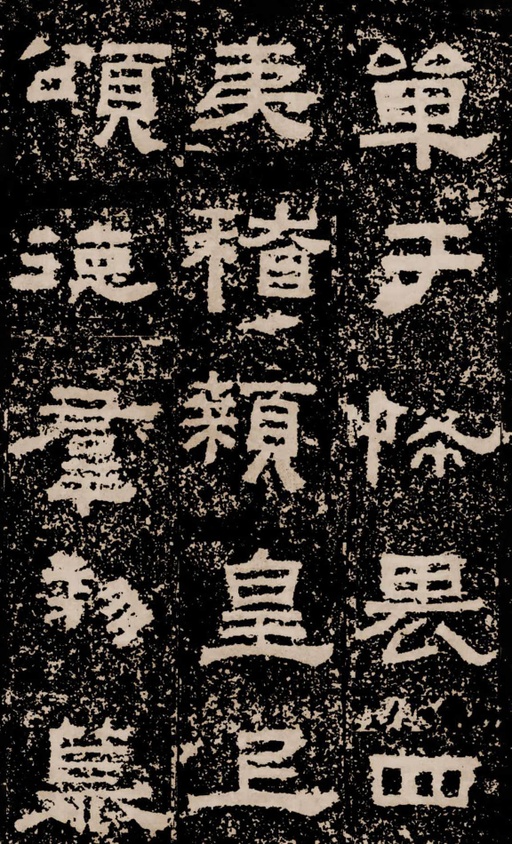 單于怖畏四
夷稽顙皇上
頌德羣黎慕